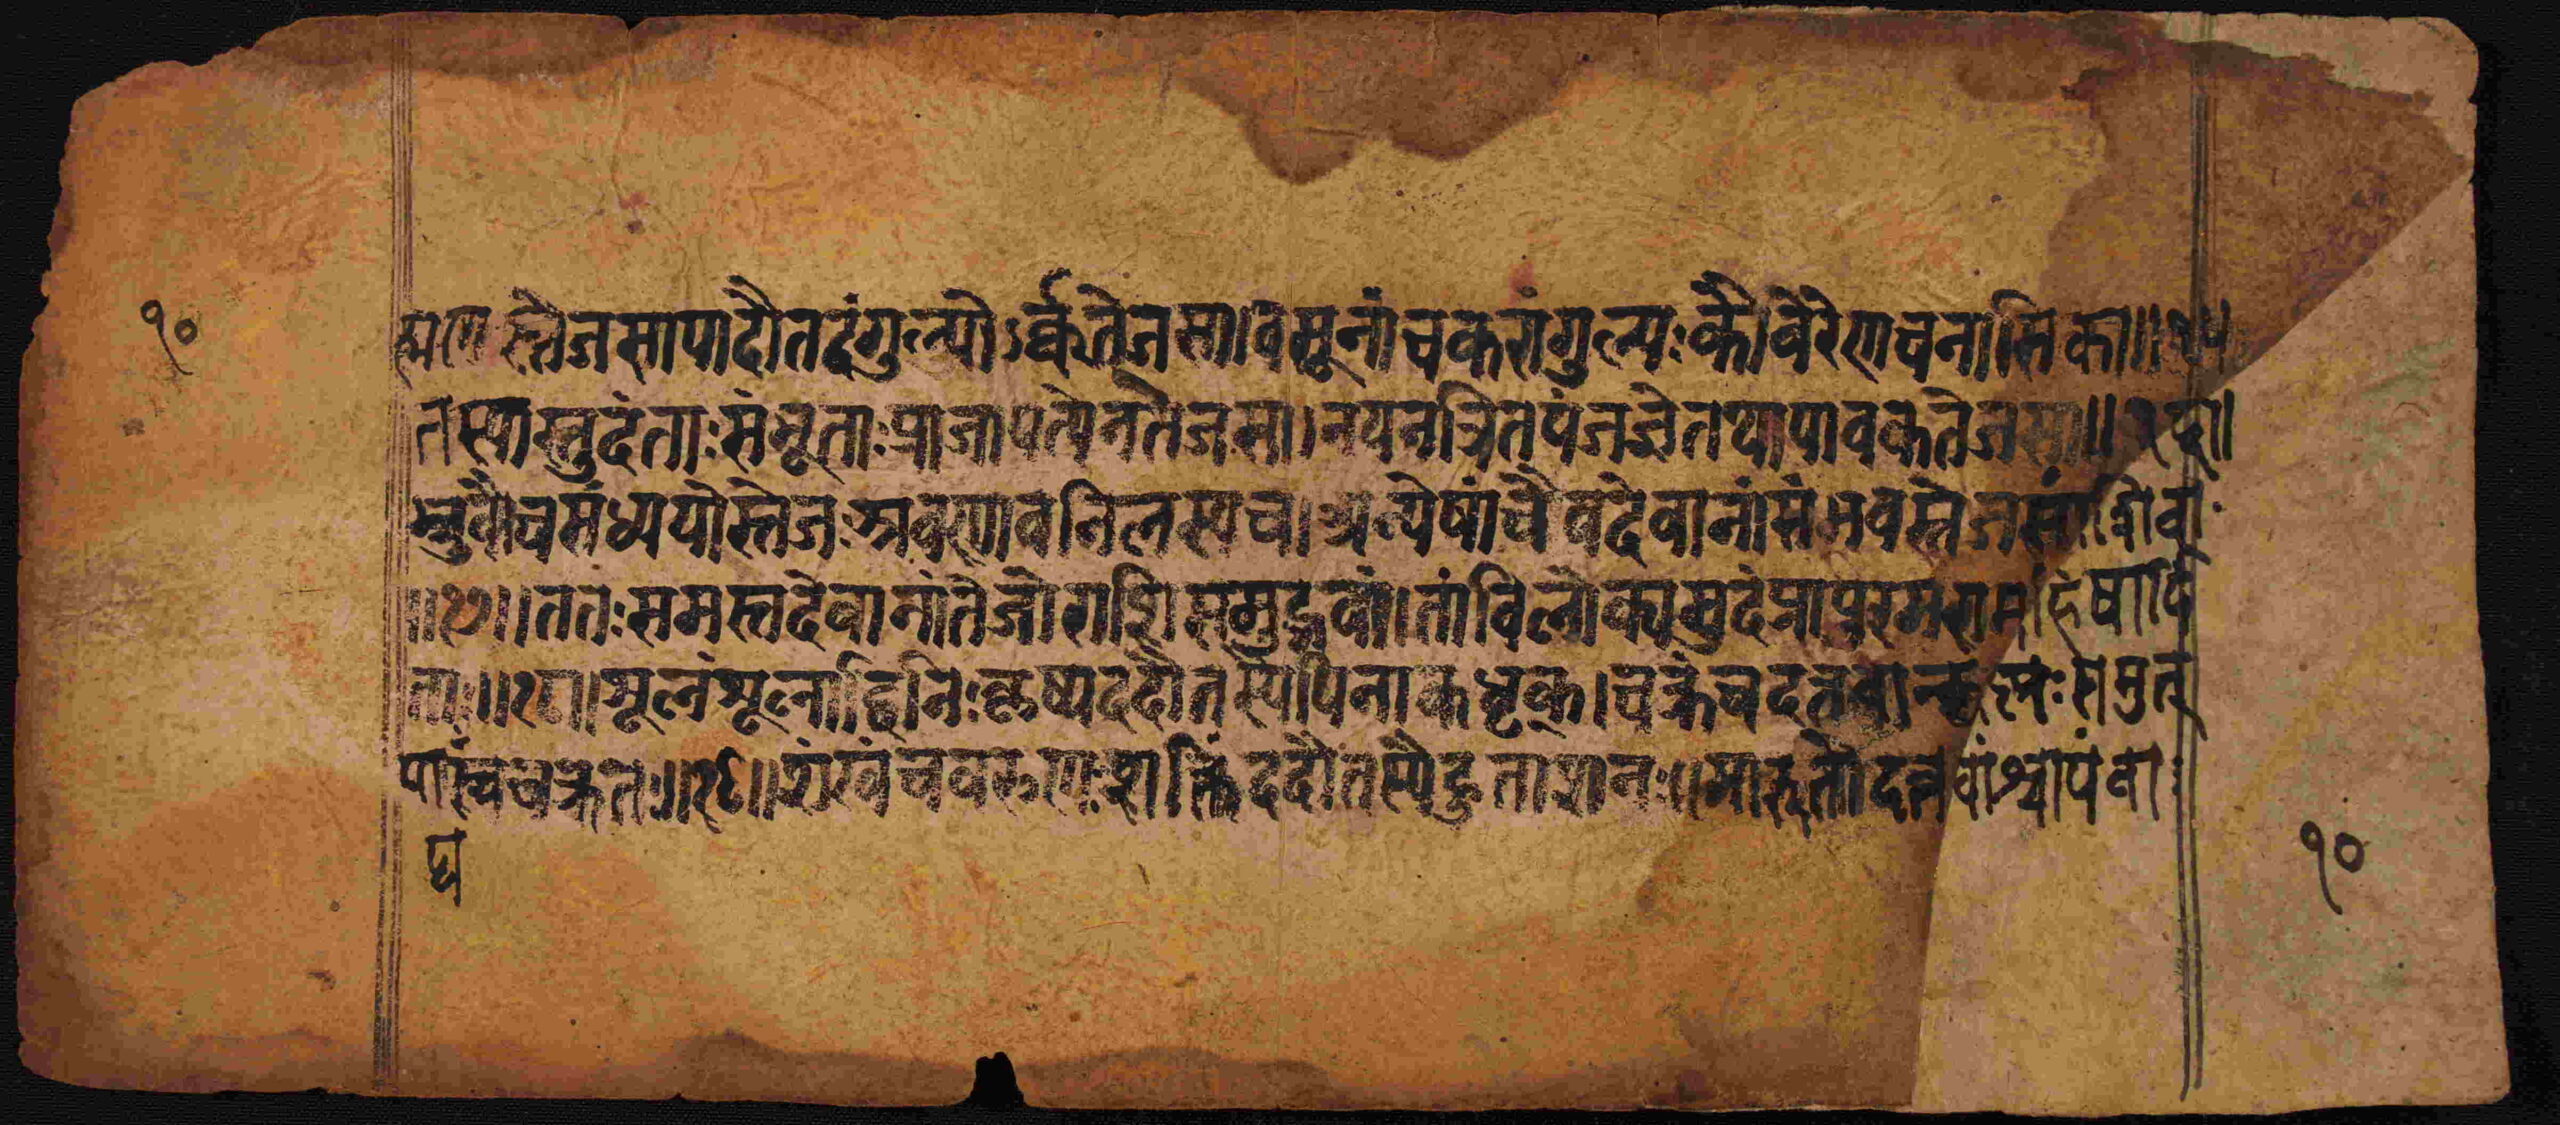 १०
ह्मणस्तेजसापादौतदंगुल्योऽर्क्कतेजसा।वसूनांचकरांगुल्यःकौवेरेणचनासिका॥१५
तस्यास्तुदंताःसंभृताःप्राजापत्येनतेजसा।नयनत्रितयंजज्ञेतथापावकतेजसा॥१६॥
भ्रुवौचसंध्ययोस्तेजःश्रवणावनिलस्यच।अन्येषांचैवदेवानांसंभवस्तेजसांशिवा
॥१७॥ततःसमस्तदेवानांतेजोराशिसमुद्भवां।तांविलोक्यमुदंप्रापुरमरामहिषार्दि
ताः॥१८॥शूलंशूलाद्विनिःकृष्यददौतस्यैपिनाकधृक्।चक्रंचदत्तवान्कृष्णःसमुत्
पाद्यस्वचक्रतः॥१९॥शंखंचवरुणःशक्तिंददौतस्यैहुताशनः॥मारुतोदत्तवांश्चापंवा
द्य
१०